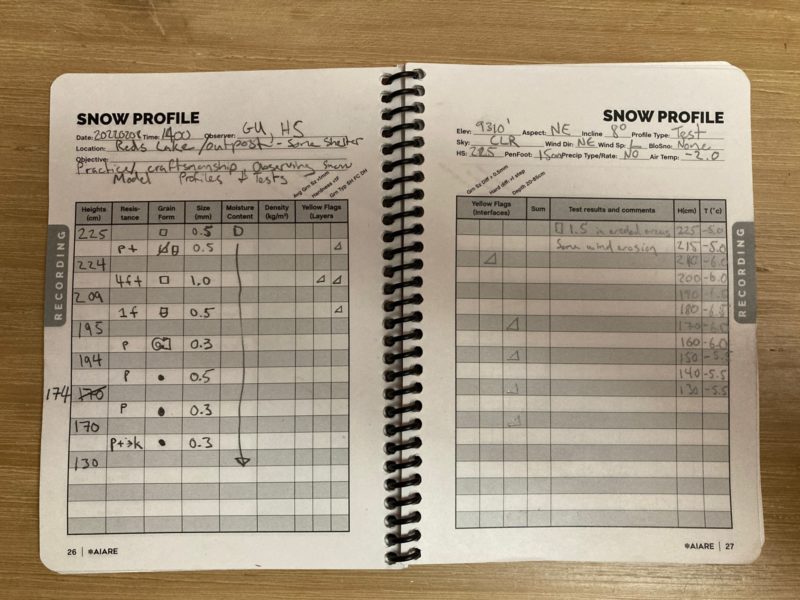 SNOW PROFILE
Date: 20220208 Time: 1400 Observer: GU, HS
Location: Reds Lake/outpost - Some Shelter
Objective:
Practical craftsmanship Observing Snow
Model Profiles & Tests
Avg Grn Sz >1mm
Hardness <1F
Grn Typ SH FC DH
Heights (cm) Resistance Grain Form Size (mm) Moisture Content Density (kg/m³) Yellow Flags (Layers)
225 □ 0.5 D
P+ 0.5
224
4f+ □ 1.0
209
1f 0.5
195
P 0.3
194
P • 0.5
174 170
P • 0.3
170
P+→k • 0.3
130
RECORDING
26 | AIARE
SNOW PROFILE
Elev: 9310' Aspect: NE Incline 8° Profile Type: Test
Sky: CLR Wind Dir: NE Wind Sp: L BloSno: None
HS: 225 PenFoot: 15cm Precip Type/Rate: NO Air Temp: -2.0
Grn Sz Diff > 0.5mm
Hard diff >1 step
Depth 20-85cm
Yellow Flags (Interfaces) Sum Test results and comments H(cm) T (°c)
□ 1.5 in eroded areas 225 -5.0
Some wind erosion 215 -5.0
210 -6.0
200 -6.0
190
180
170
160 -6.0
150 -5.5
140 -5.5
130 -5.5
RECORDING
AIARE | 27